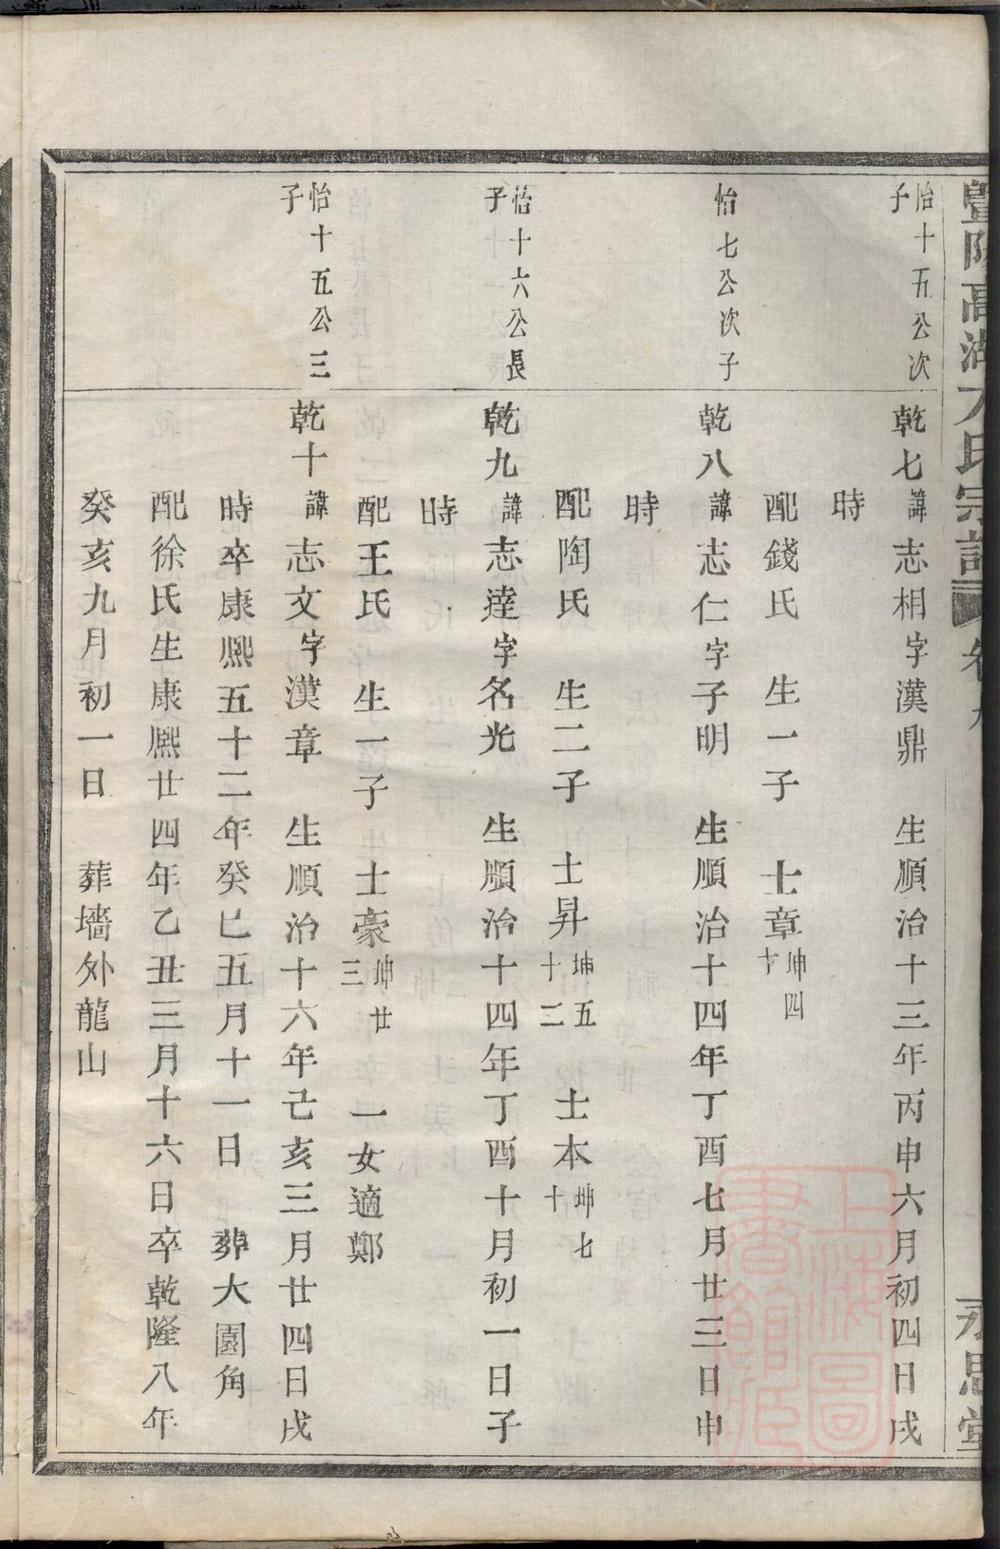 暨陽高湖方氏宗譜 卷九 永思堂
怡十五公次子
乾七 諱志相字漢鼎 生順治十三年丙申六月初四日戌
時
配錢氏 生一子 士章坤四十
怡七公次子
乾八 諱志仁字子明 生順治十四年丁酉七月廿三日申
時
配陶氏 生二子 士昇坤五十二 士本坤七十
怡十六公長子
乾九 諱志達字名光 生順治十四年丁酉十月初一日子
時
配王氏 生一子 士豪坤廿三 一女適鄭
怡十五公三子
乾十 諱志文字漢章 生順治十六年己亥三月廿四日戌
時卒康熙五十二年癸巳五月十一日 葬大園角
配徐氏生康熙廿四年乙丑三月十六日卒乾隆八年
癸亥九月初一日 葬墻外龍山
上海圖書館藏